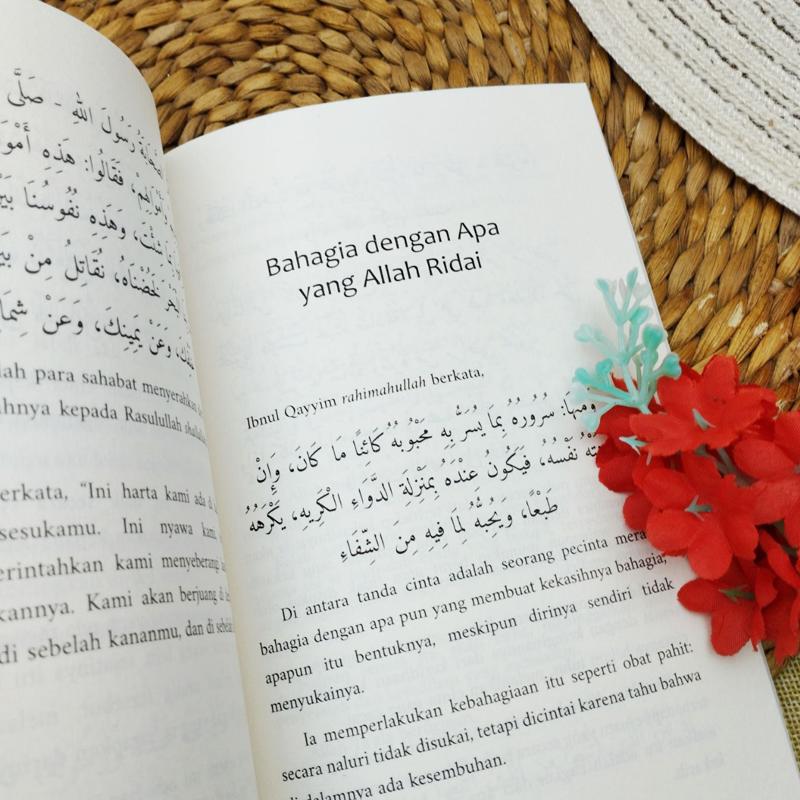 صَحَابَةُ رَسُولَ اللهِ - صَلَّى
فَقَالُوا: هَذِهِ
وَهَذِهِ نُفُوسُنَا
خَضْنَاهُ، نُقَاتِلُ مِنْ
وَعَنْ يَمِينِكَ، وَعَنْ
para sahabat menyerahkan
kepada Rasulullah
"Ini harta kami ada di
sesukamu. Ini nyawa kami
menyeberangi
Kami akan berjuang di
di sebelah kananmu, dan di
Bahagia dengan Apa
yang Allah Ridai
Ibnul Qayyim rahimahullah berkata,
وَمِنْهَا: سُرُورُهُ بِمَا يُسَرُّ بِهِ مَحْبُوبُهُ كَائِنًا مَا كَانَ، وَإِنْ
نَفْسُهُ، فَيَكُونُ عِنْدَهُ بِمَنْزِلَةِ الدَّوَاءِ الْكَرِيهِ، يَكْرَهُهُ
طَبْعًا، وَيُحِبُّهُ لِمَا فِيهِ مِنَ الشِّفَاءِ
Di antara tanda cinta adalah seorang pecinta
bahagia dengan apa pun yang membuat kekasihnya bahagia;
apapun itu bentuknya, meskipun dirinya sendiri tidak
menyukainya.
Ia memperlakukan kebahagiaan itu seperti obat pahit:
secara naluri tidak disukai, tetapi dicintai karena tahu bahwa
di dalamnya ada kesembuhan.